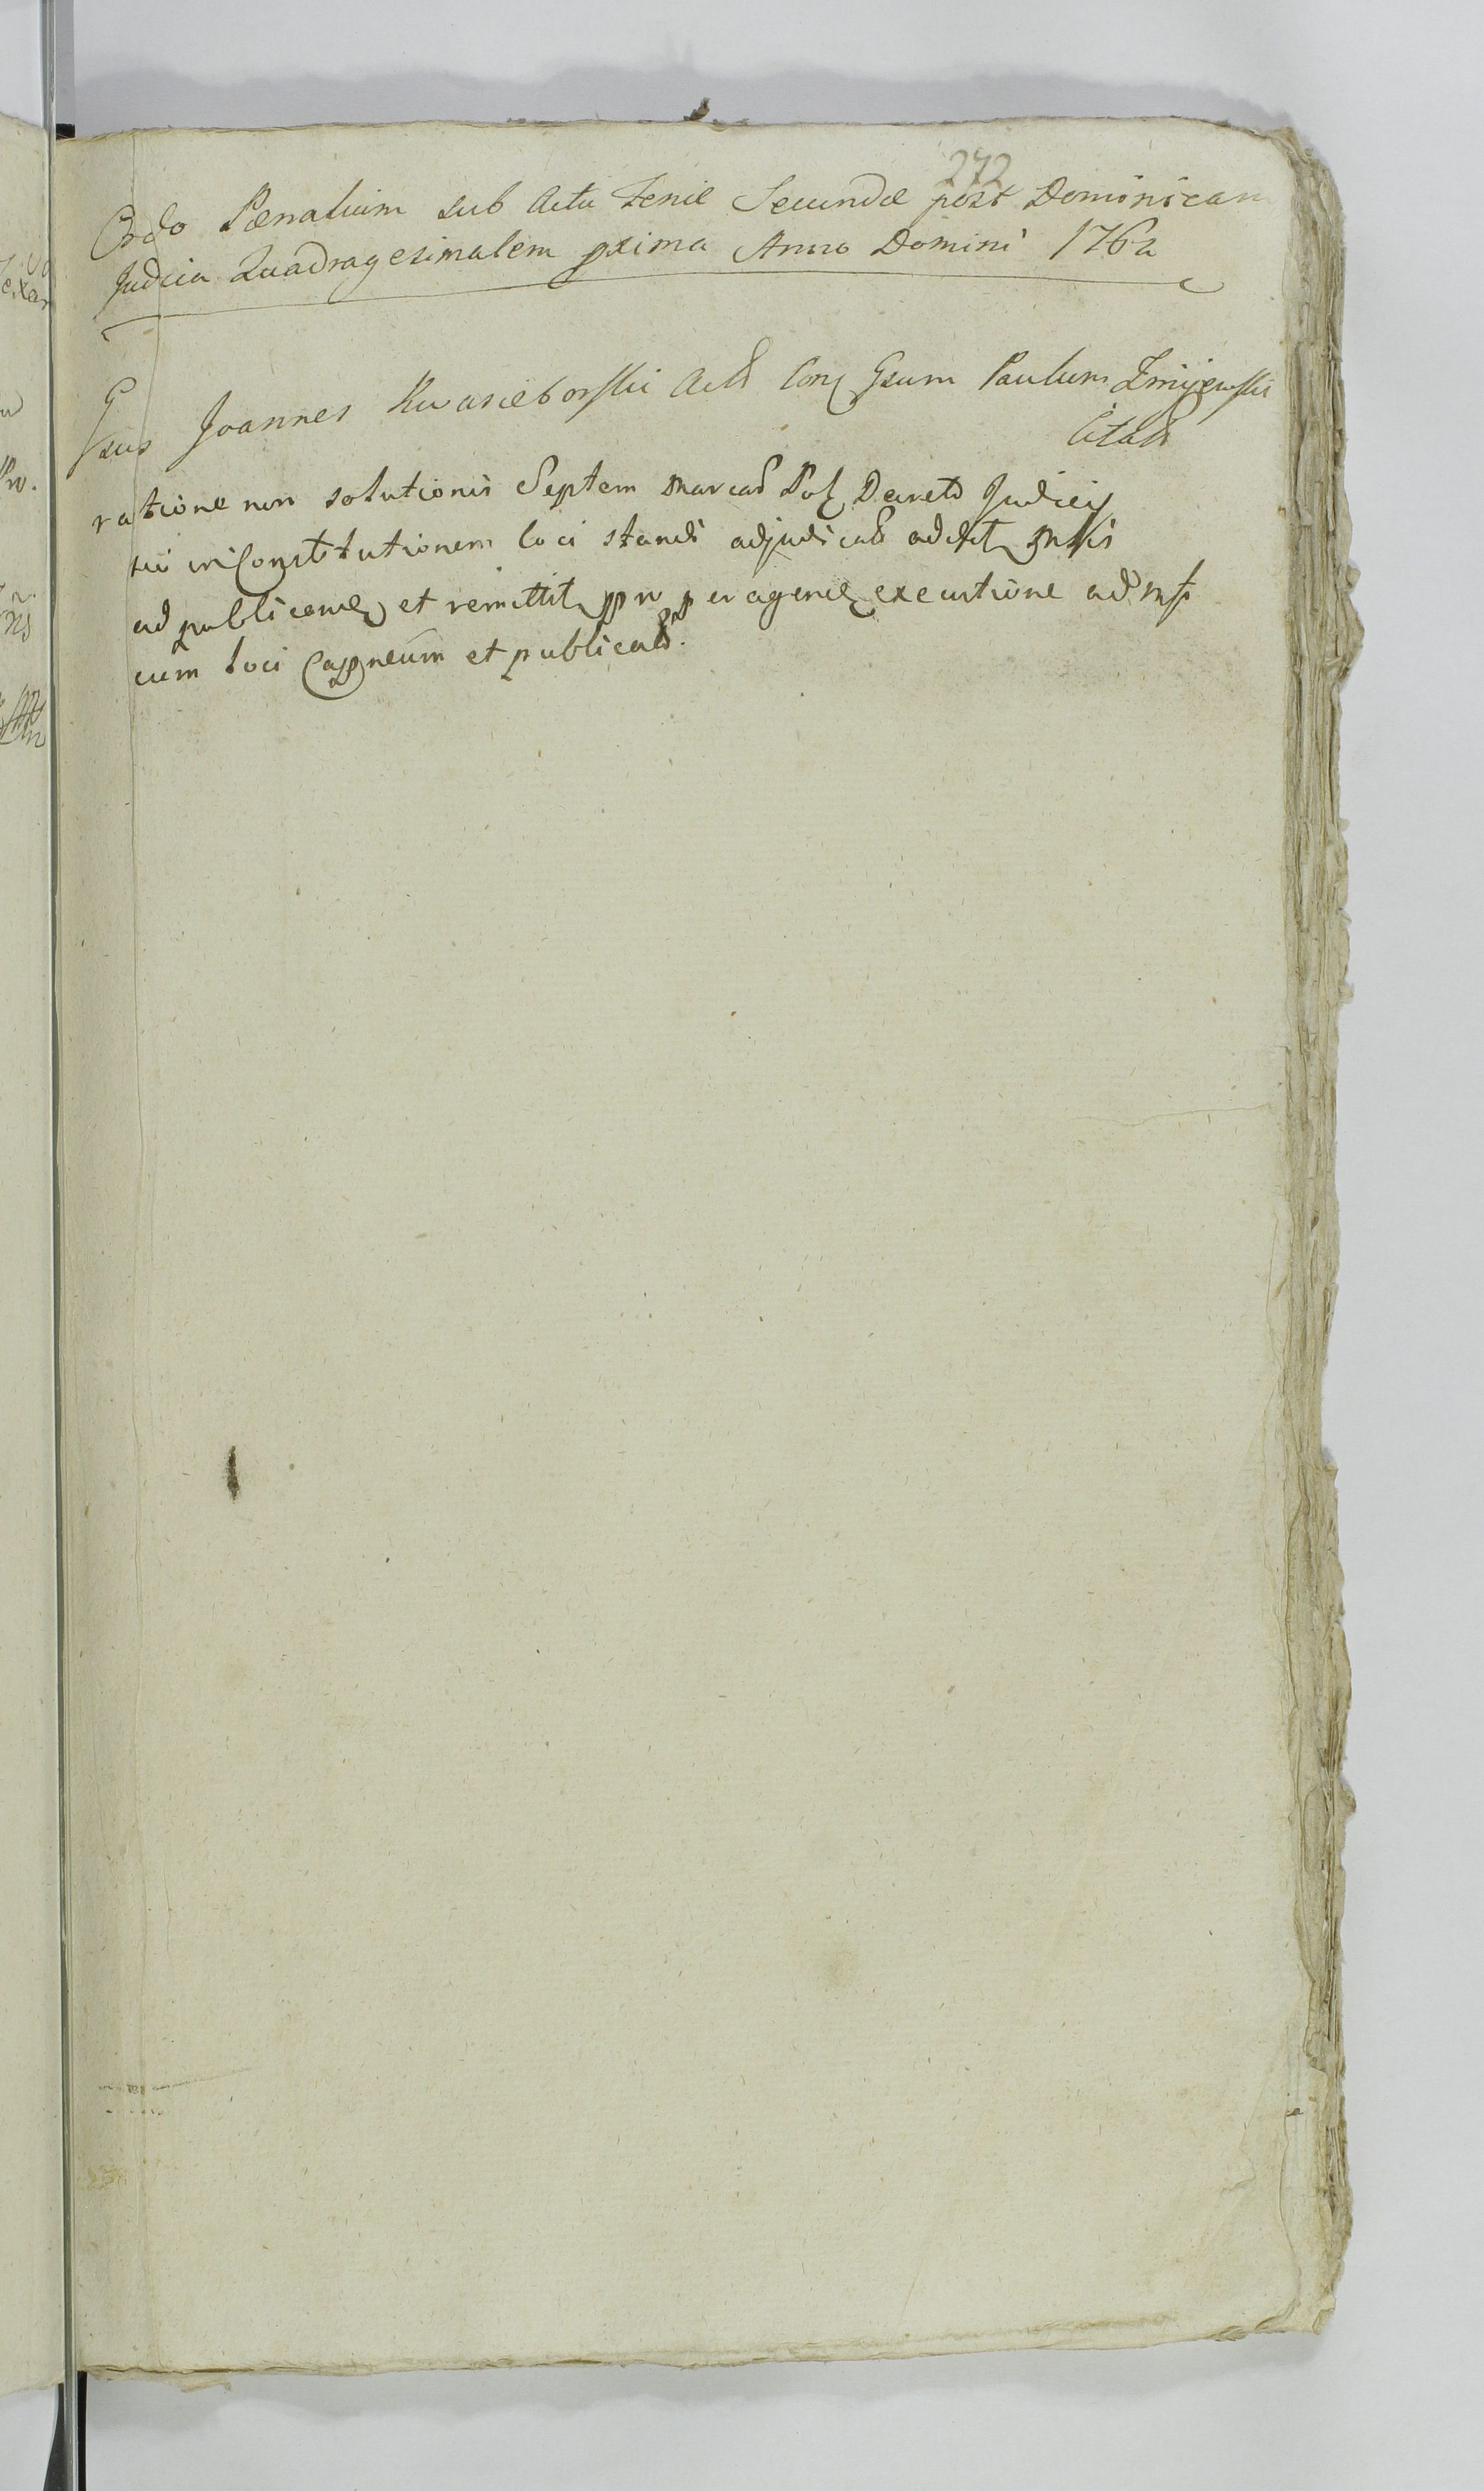 272
Ordo Pænalium sub Actu Feriæ Secundæ post Dominicam
Judicia Quadragesimalem prima Anno Domini 1762
Gsus Joannes Kwasieborski Act Con Gsum Paulum Zmijewski
Citat
ratione non solutionis Septem Marcas Pol Decreto Judicij
sui in Constitutionem loci standi adjudicat
ad publicand et remittit pro peragend executione ad
cum loci et publicat.